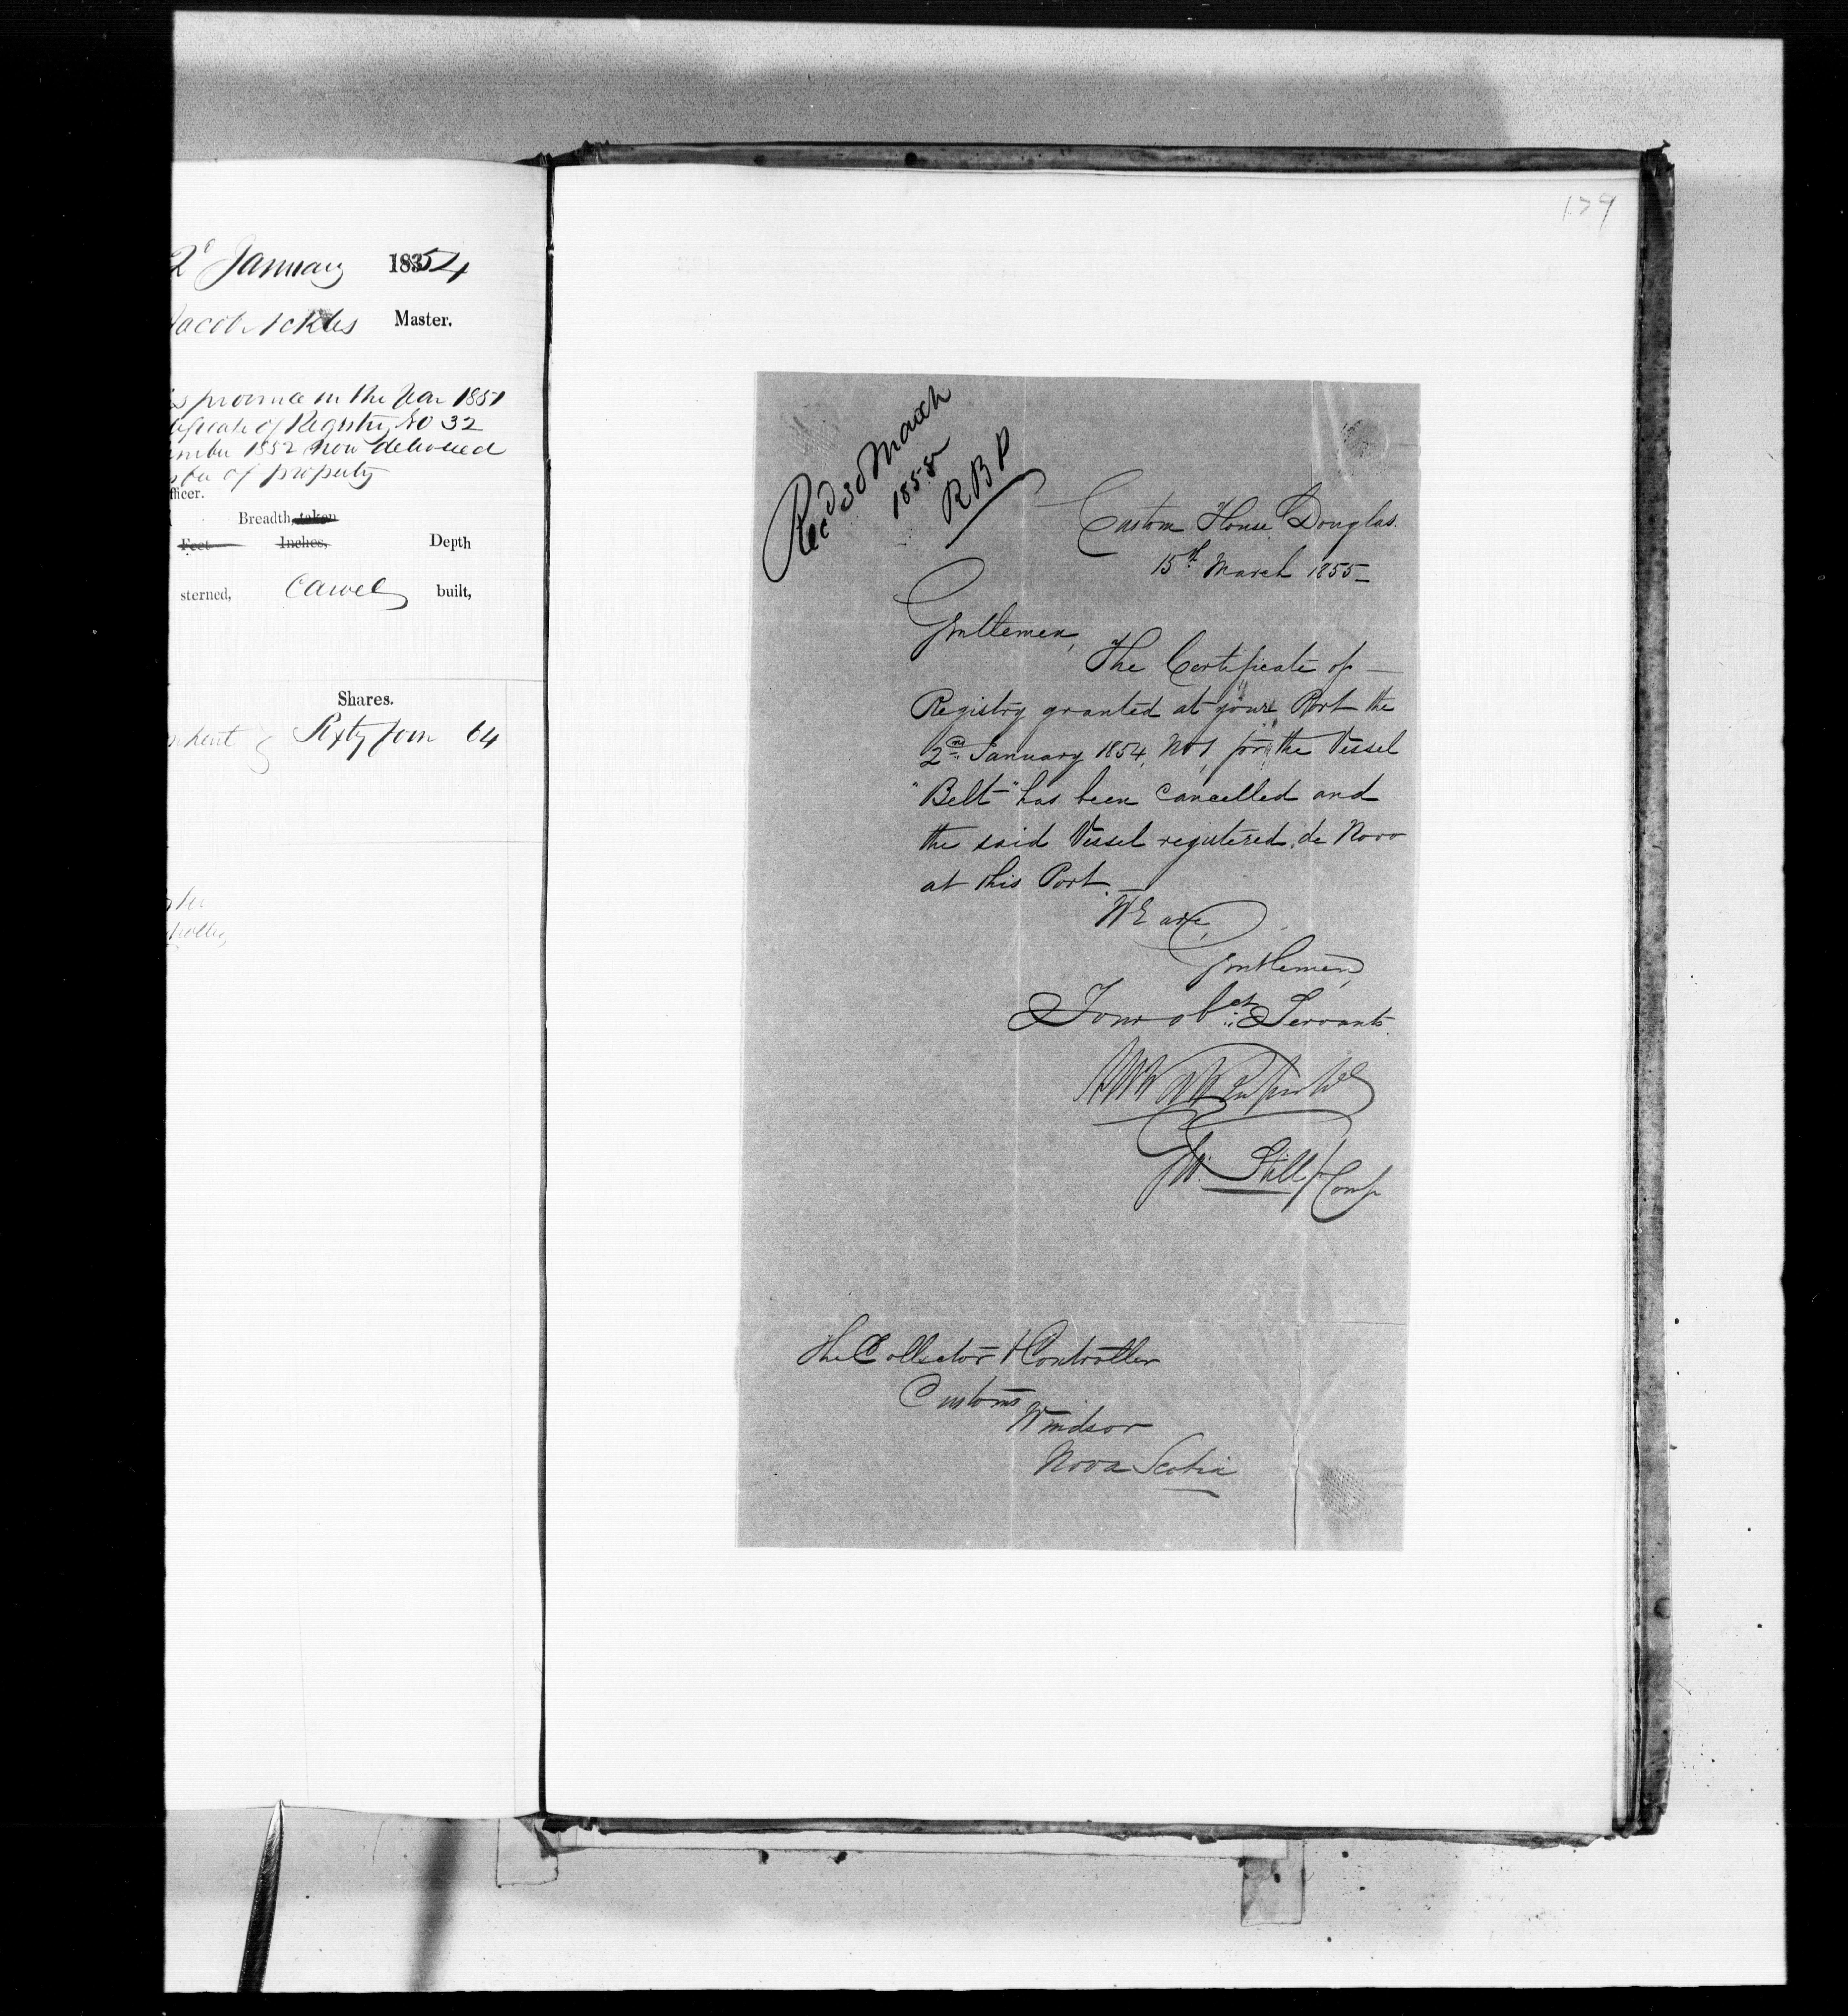 2d January 1854
Jacob Ackles Master.
is province in the Year 1851
tificate of Registry No 32
ember 1852 now delivered
of property
fficer.
Breadth, taken
Feet Inches, Depth
sterned, Carvel built,
Shares.
Sixty four 64
179
Recd 30 March
1855
R B P
Custom House Douglas.
15th March 1855
Gentlemen,
The Certificate of
Registry granted at your Port the
2nd January 1854, No 1, for the Vessel
"Belt" has been Cancelled and
the said Vessel registered de Novo
at this Port.
We are,
Gentlemen,
Your obet Servants.
Still Comp
The Collector & Controller
Customs
Windsor
Nova Scotia